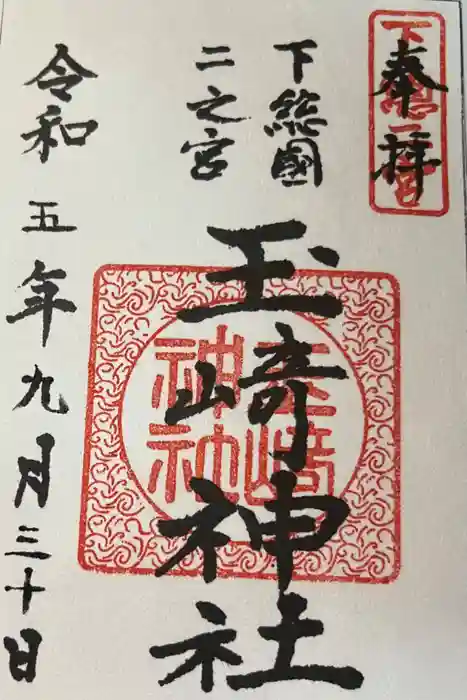 奉拝
下總二宮
下総國
二之宮
玉﨑神社
玉﨑神社
令和五年九月三十日